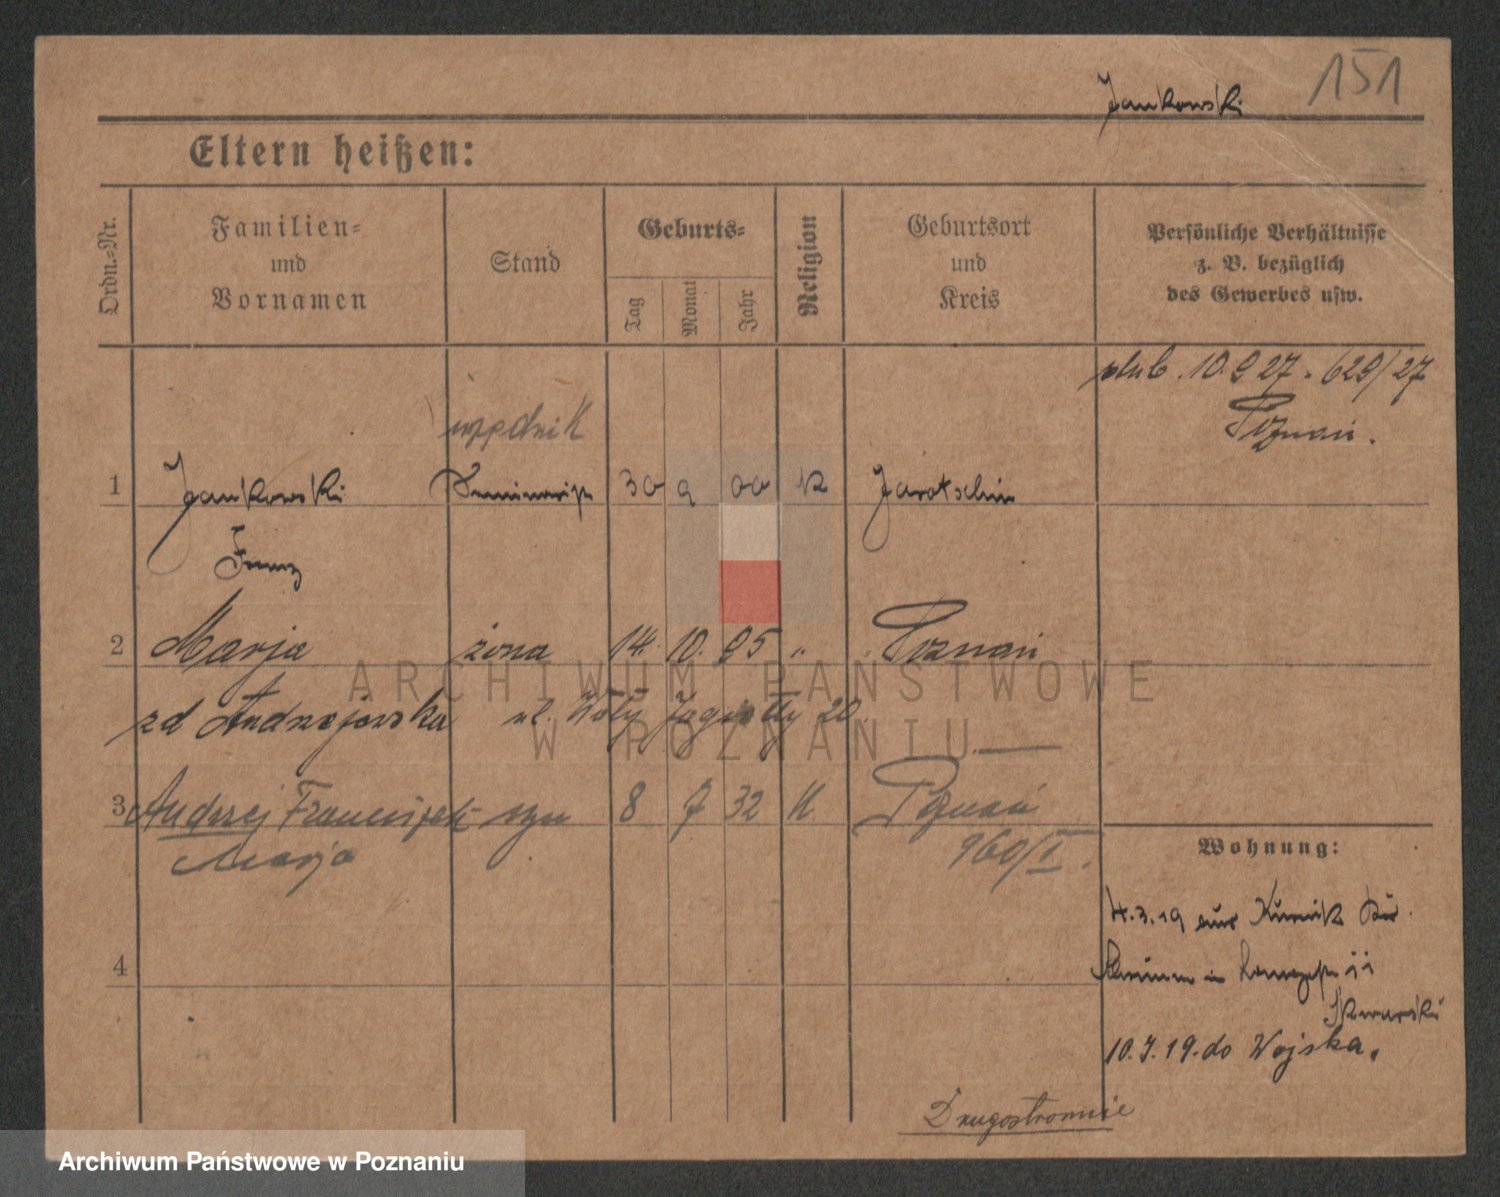 Jankowski 151
Eltern heißen:
Ordn.-Nr.
Familien-
und
Vornamen
Stand
Geburts-
Tag
Monat
Jahr
Religion
Geburtsort
und
Kreis
Persönliche Verhältnisse
z. B. bezüglich
des Gewerbes usw.
ślub. 10.9 27. 629/27
Poznań.
urzędnik
1 Jankowski Seminarist 30 9 00 K Jarotschin
Franz
2 Marja żona 14. 10. 05 " Poznań
zd Andrzejewska ul. Wały Jagiełły 20
3 Andrzej Franciszek syn 8 7 32 K Poznań
Marja 960/I.
Wohnung:
4.3.19 aus Kurnik
in
4
Skwarski
10.7.19. do Wojska.
Drugostronnie
ARCHIWUM PAŃSTWOWE
W POZNANIU
Archiwum Państwowe w Poznaniu